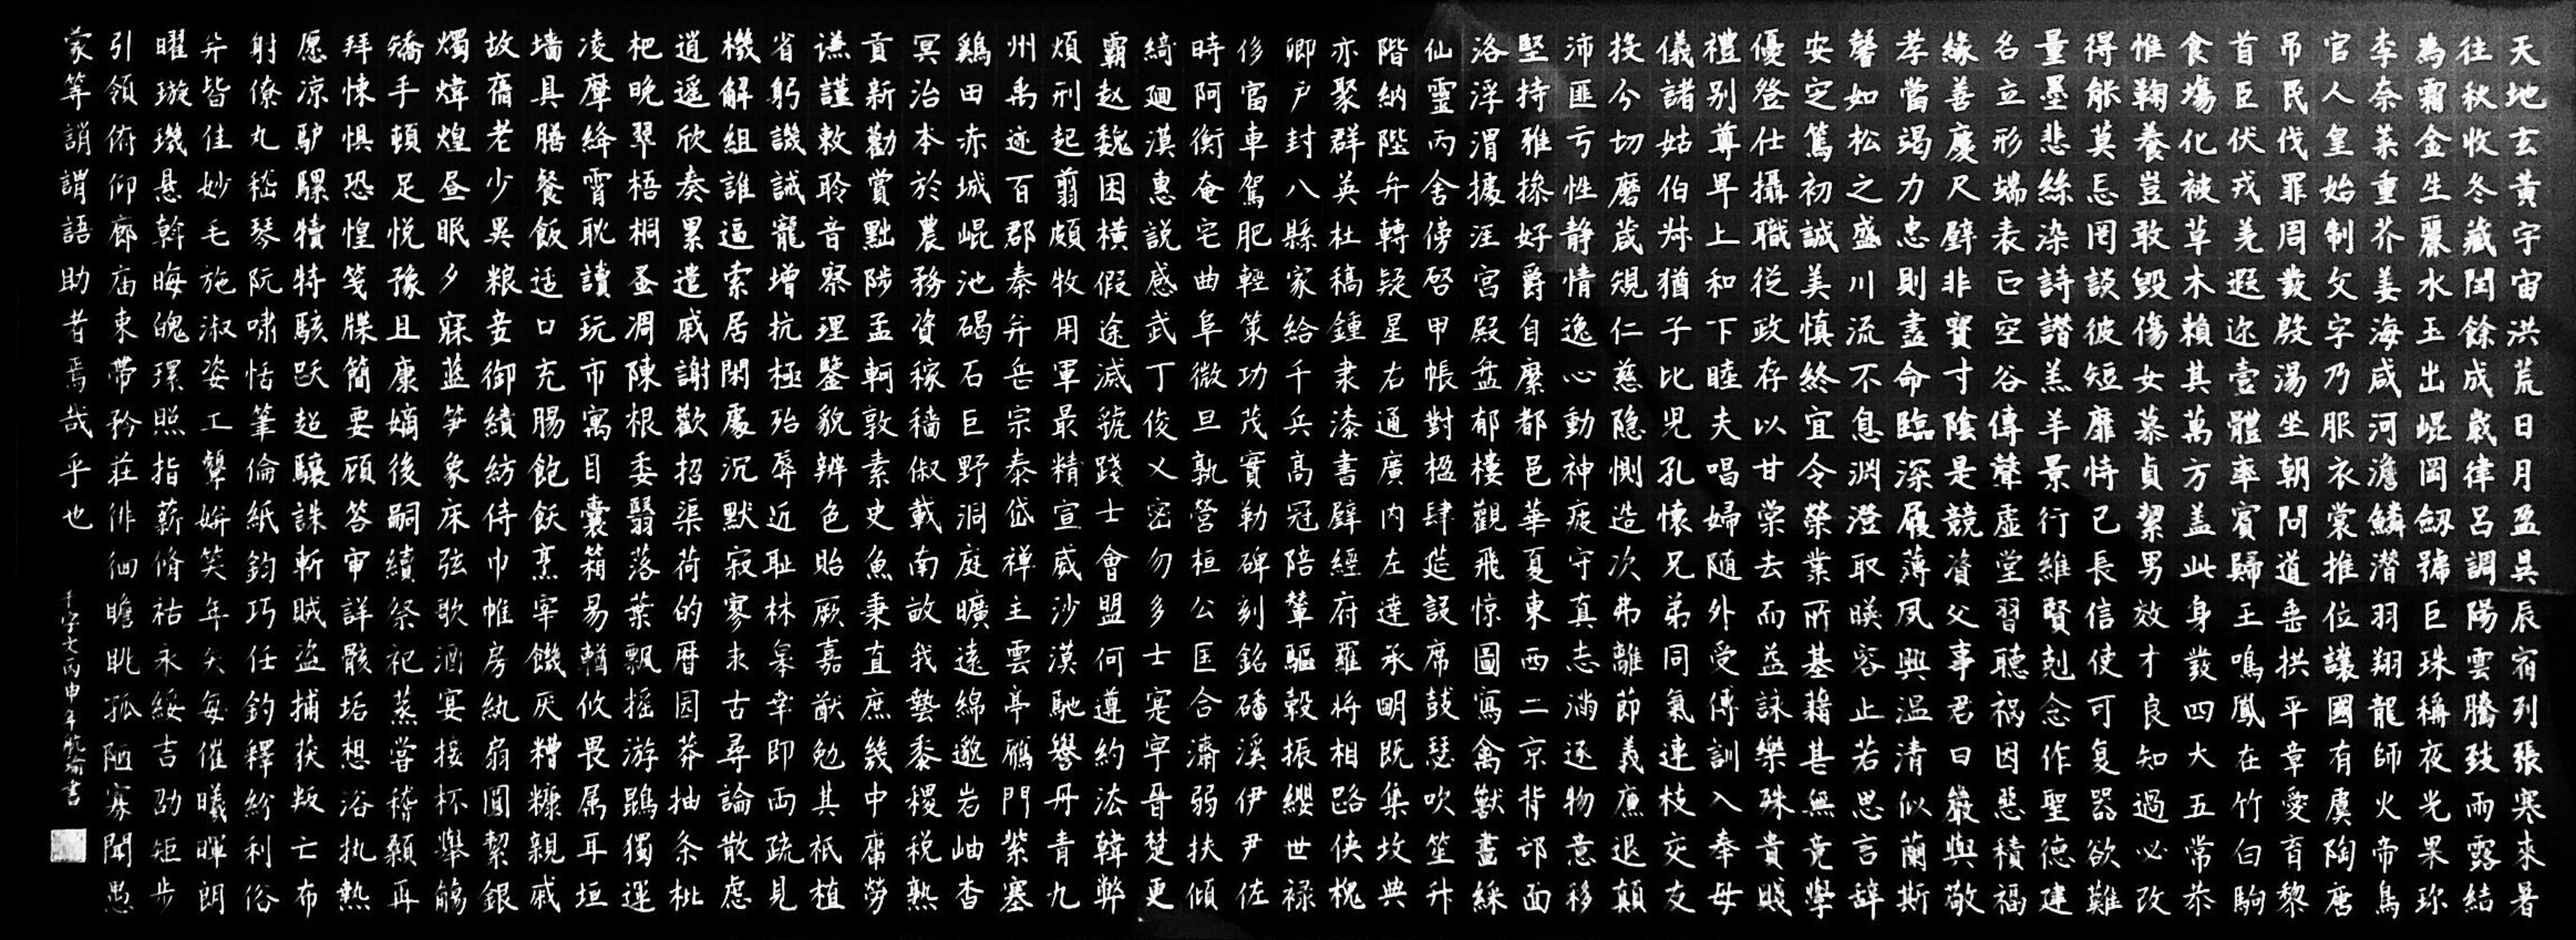 天地玄黃宇宙洪荒日月盈昃辰宿列張寒來暑
往秋收冬藏閏餘成歲律呂調陽雲騰致雨露結
為霜金生麗水玉出崐岡劔號巨珠稱夜光果珎
李柰菜重芥姜海咸河澹鱗潛羽翔龍師火帝鳥
官人皇始制文字乃服衣裳推位讓國有虞陶唐
吊民伐罪周發殷湯坐朝問道垂拱平章愛育黎
首臣伏戎羌遐迩壹體率賓歸王鳴鳳在竹白駒
食場化被草木賴其萬方盖此身髮四大五常恭
惟鞠養豈敢毀傷女慕貞絜男效才良知過必改
得能莫忘罔談彼短靡恃己長信使可复器欲難
量墨悲絲染詩讚羔羊景行維賢剋念作聖德建
名立形端表正空谷傳聲虛堂習聽祸因惡積福
緣善慶尺壁非寶寸陰是競資父事君曰嚴與敬
孝當竭力忠則盡命臨深履薄夙興温清似蘭斯
馨如松之盛川流不息淵澄取暎容止若思言辞
安定篤初誠美慎終宜令榮業所基藉甚無竟學
優登仕攝職從政存以甘棠去而益詠樂殊貴賤
禮別尊卑上和下睦夫唱婦随外受傅訓入奉母
儀諸姑伯叔猶子比兒孔懷兄弟同氣連枝交友
投分切磨葴規仁慈隐惻造次弗離節義廉退顛
沛匪亏性静情逸心動神疲守真志滿逐物意移
堅持雅操好爵自縻都邑華夏東西二京背邙面
洛浮渭據涇宮殿盘郁樓觀飛惊圖寫禽獸畫綵
仙靈丙舍傍啓甲帳對楹肆筵設席鼓瑟吹笙升
階納陛弁轉疑星右通廣内左達承明既集坟典
亦聚群英杜稿鍾隶漆書壁經府羅將相路侠槐
卿户封八縣家給千兵高冠陪輦驅轂振纓世禄
侈富車駕肥輕策功茂實勒碑刻銘磻溪伊尹佐
時阿衡奄宅曲阜微旦孰營桓公匡合濟弱扶傾
綺迴漢惠説感武丁俊乂密勿多士寔寧晉楚更
霸赵魏困横假途滅虢踐土會盟何遵約法韓弊
煩刑起翦頗牧用軍最精宣威沙漠馳譽丹青九
州禹迹百郡秦并岳宗泰岱禅主雲亭雁門紫塞
鷄田赤城崐池碣石巨野洞庭曠遠綿邈岩岫杳
冥治本於農務資稼穡俶載南畝我藝黍稷税熟
貢新勸賞黜陟孟軻敦素史魚秉直庶幾中庸勞
謙謹敕聆音察理鑒貌辨色貽厥嘉猷勉其祇植
省躬譏誡寵增抗極殆辱近耻林皋幸即兩疏見
機解組誰逼索居閑處沉默寂寥求古尋論散慮
逍遥欣奏累遣戚謝歡招渠荷的曆园莽抽条枇
杷晚翠梧桐蚤凋陳根委翳落葉飄摇游鵾獨運
凌摩絳霄耽讀玩市寓目囊箱易輶攸畏属耳垣
墙具膳餐飯适口充腸飽飫烹宰饑厌糟糠親戚
故舊老少異粮妾御績紡侍巾帷房紈扇圓絜銀
燭煒煌昼眠夕寐蓝笋象床弦歌酒宴接杯舉觴
矯手頓足悦豫且康嫡後嗣續祭祀蒸嘗稽顙再
拜悚惧恐惶笺牒簡要顧答审詳骸垢想浴执熱
愿凉驴騾犢特駭跃超驤誅斬贼盗捕获叛亡布
射僚丸嵇琴阮啸恬筆倫紙鈞巧任釣釋紛利俗
并皆佳妙毛施淑姿工顰妍笑年矢每催曦暉朗
曜璇璣悬斡晦魄環照指薪脩祜永綏吉劭矩步
引領俯仰廊庙束帶矜莊俳徊瞻眺孤陋寡聞愚
蒙等誚謂語助者焉哉乎也
千字文丙申年航瑜書